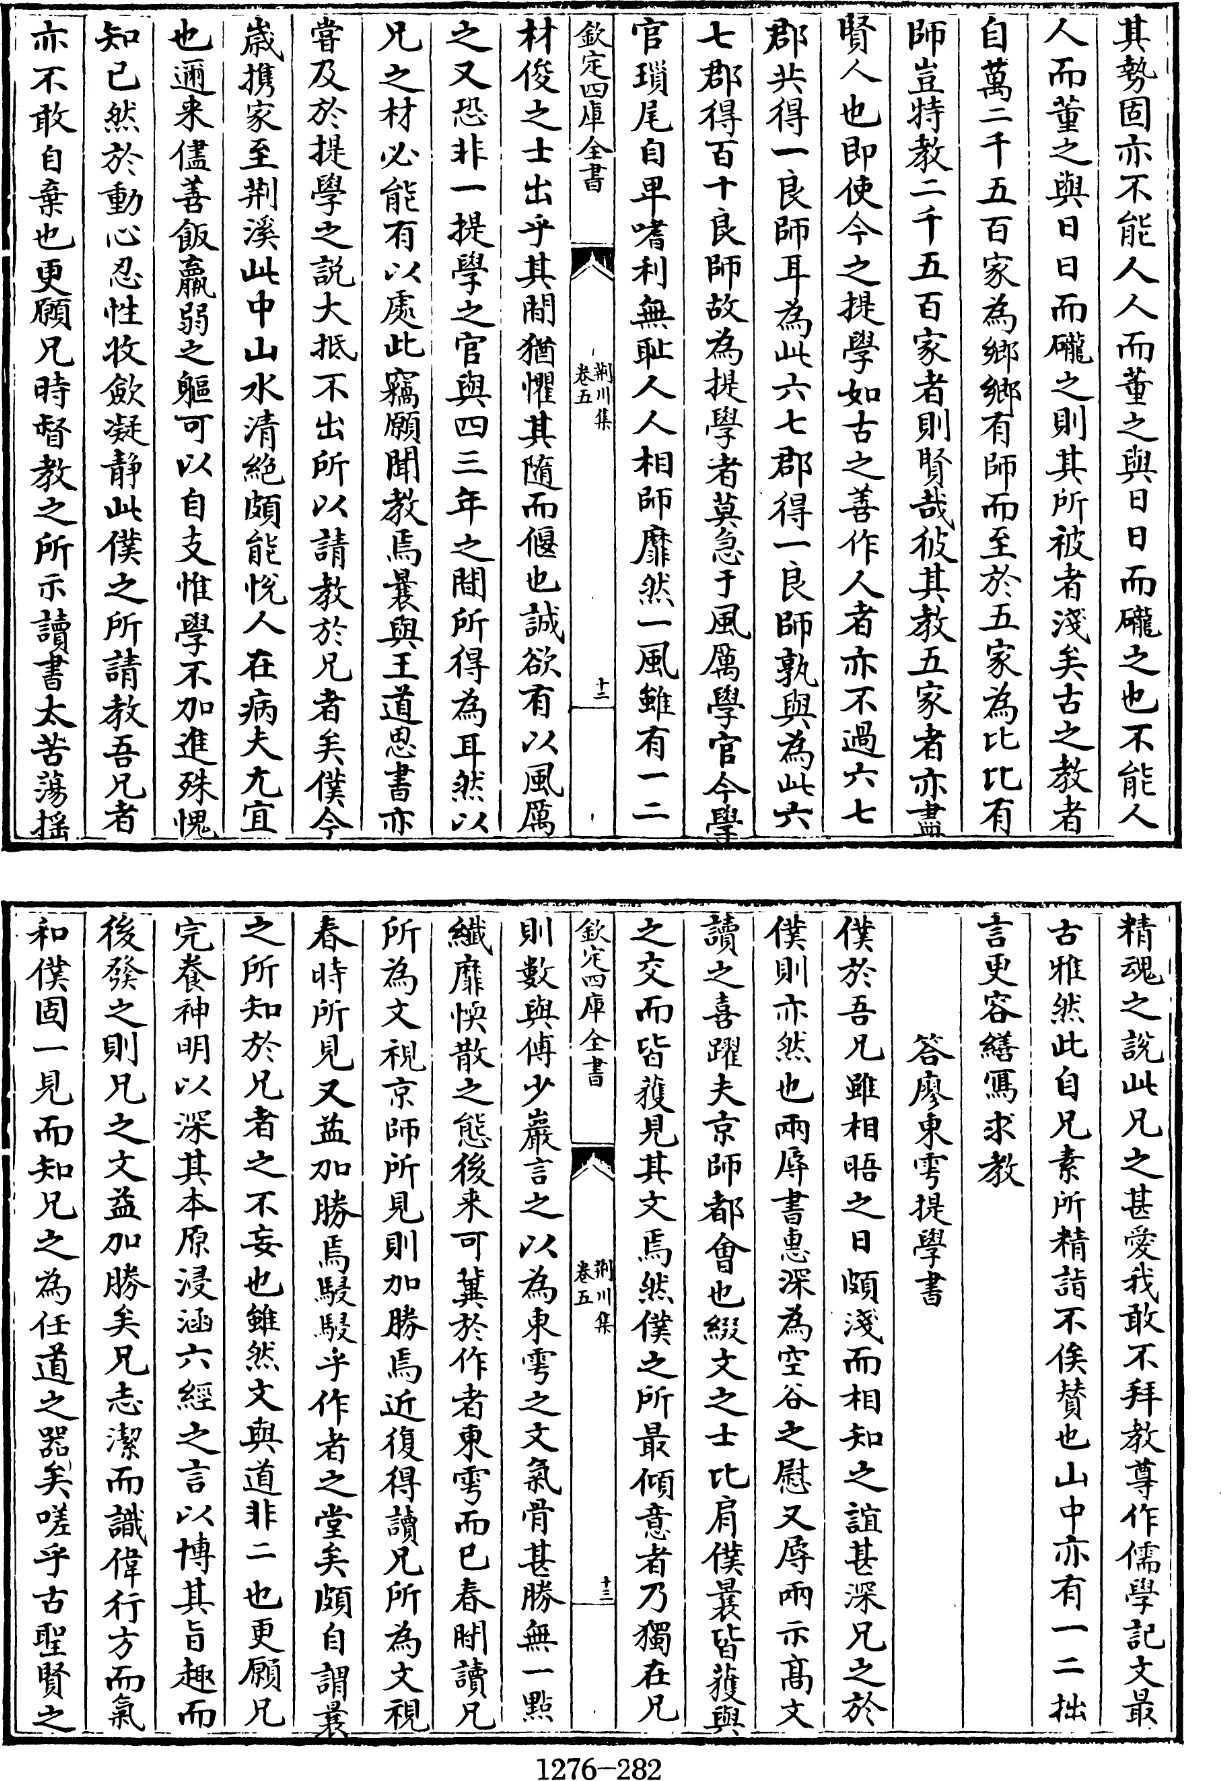 其勢固亦不能人人而董之與日日而礲之也不能人
人而董之與日日而礲之則其所被者淺矣古之教者
自萬二千五百家為鄉鄉有師而至於五家為比比有
師豈特教二千五百家者則賢哉彼其教五家者亦盡
賢人也即使今之提學如古之善作人者亦不過六七
郡共得一良師耳為此六七郡得一良師孰與為此六
七郡得百十良師故為提學者莫急于風厲學官今學
官瑣尾自卑嗜利無耻人人相師靡然一風雖有一二
欽定四庫全書
荆川集
卷五
十二
材俊之士出乎其間猶懼其隨而偃也誠欲有以風厲
之又恐非一提學之官與四三年之間所得為耳然以
兄之材必能有以處此竊願聞教焉曩與王道思書亦
嘗及於提學之說大抵不出所以請教於兄者矣僕今
歳携家至荆溪此中山水清絶頗能悅人在病夫尤宜
也邇来儘善飯羸弱之軀可以自支惟學不加進殊愧
知已然於動心忍性收斂凝静此僕之所請教吾兄者
亦不敢自棄也更願兄時督教之所示讀書太苦蕩揺
精魂之說此兄之甚愛我敢不拜教尊作儒學記文最
古雅然此自兄素所精詣不俟贊也山中亦有一二拙
言更容繕寫求教
答廖東雩提學書
僕於吾兄雖相晤之日頗淺而相知之誼甚深兄之於
僕則亦然也兩辱書惠深為空谷之慰又辱兩示高文
讀之喜躍夫京師都會也綴文之士比肩僕曩皆獲與
之交而皆獲見其文焉然僕之所最傾意者乃獨在兄
欽定四庫全書
荆川集
卷五
十三
則數與傅少巖言之以為東雩之文氣骨甚勝無一㸃
纖靡愞散之態後来可冀於作者東雩而已春間讀兄
所為文視京師所見則加勝焉近復得讀兄所為文視
春時所見又益加勝焉駸駸乎作者之堂矣頗自謂曩
之所知於兄者之不妄也雖然文與道非二也更願兄
完養神明以深其本原浸涵六經之言以博其旨趣而
後發之則兄之文益加勝矣兄志潔而識偉行方而氣
和僕固一見而知兄之為任道之器矣嗟乎古聖賢之
1276-282